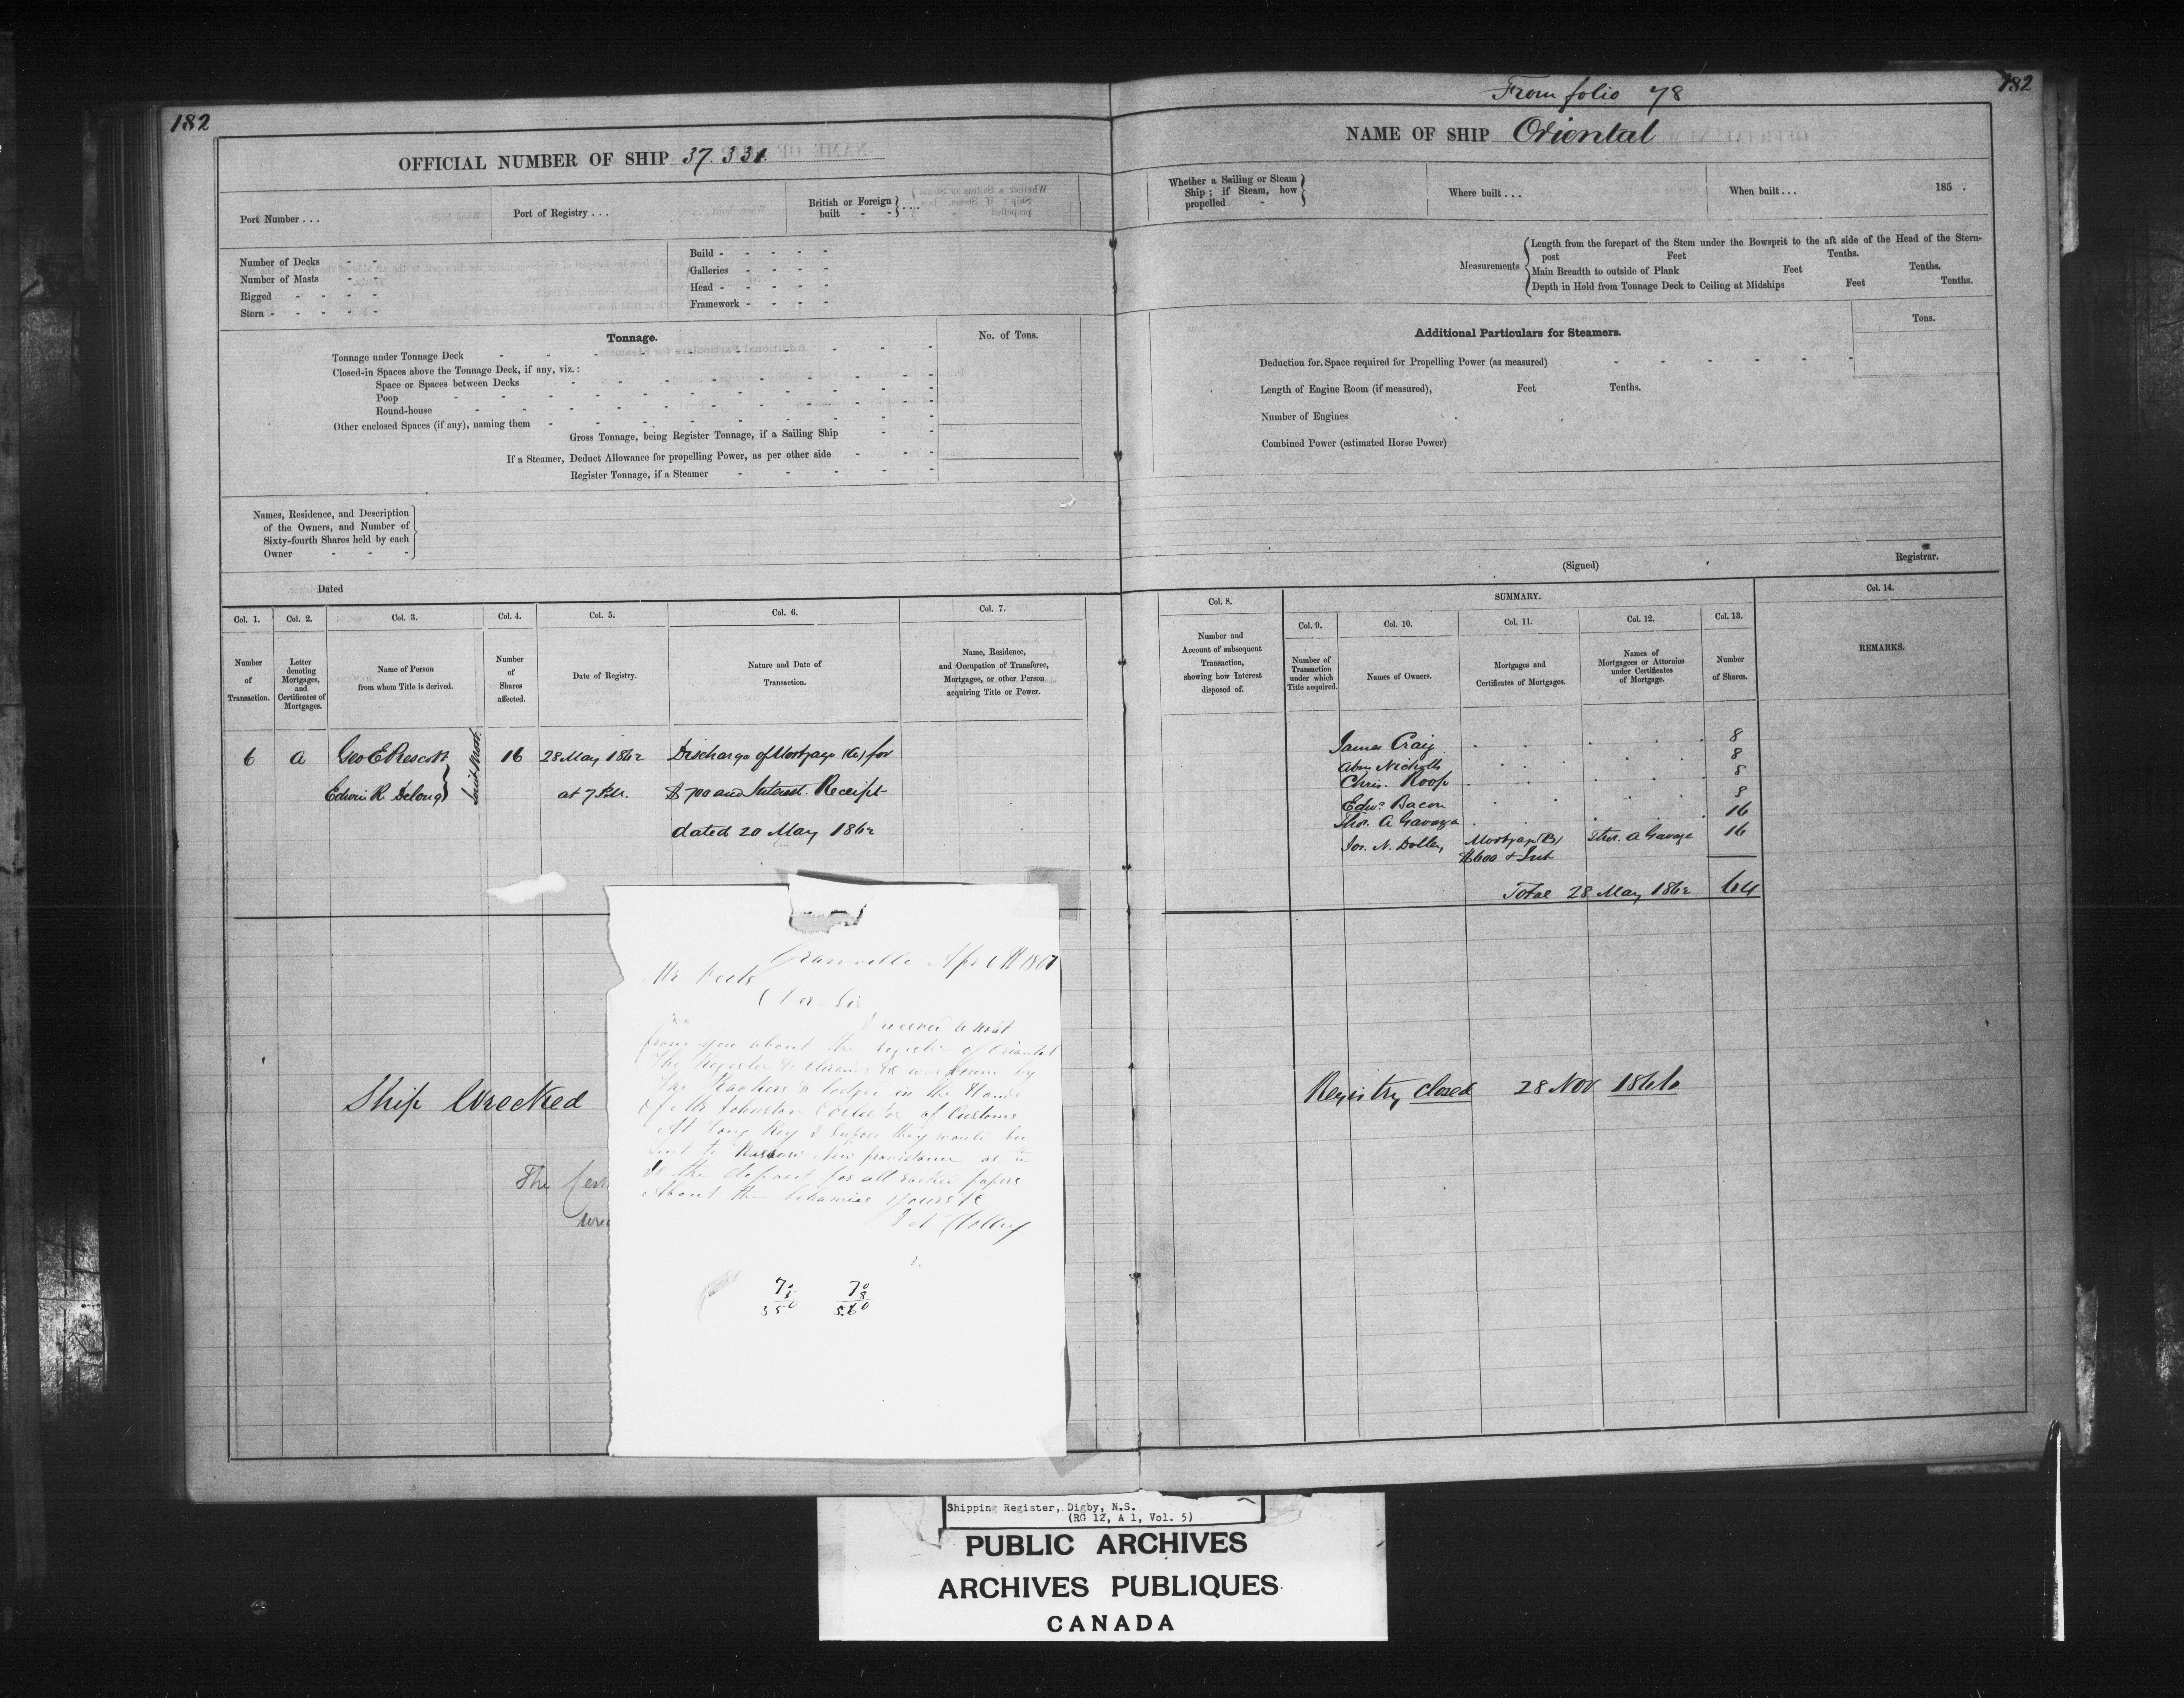 182
OFFICIAL NUMBER OF SHIP 37.331
Port Number . . .
Port of Registry . . .
British or Foreign built - - } . . . .
Number of Decks - -
Number of Masts - -
Rigged - - - -
Stern - - - - -
Build - - - - -
Galleries - - - -
Head - - - - -
Framework - - - -
Tonnage.
No. of Tons.
Tonnage under Tonnage Deck
Closed-in Spaces above the Tonnage Deck, if any, viz. :
Space or Spaces between Decks
Poop
Round-house
Other enclosed Spaces (if any), naming them
Gross Tonnage, being Register Tonnage, if a Sailing Ship
If a Steamer, Deduct Allowance for propelling Power, as per other side
Register Tonnage, if a Steamer
Names, Residence, and Description
of the Owners, and Number of
Sixty-fourth Shares held by each
Owner - - -
Dated
Col. 1. Col. 2. Col. 3. Col. 4. Col. 5. Col. 6. Col. 7.
Number of Transaction.
Letter denoting Mortgages, and Certificates of Mortgages.
Name of Person from whom Title is derived.
Number of Shares affected.
Date of Registry.
Nature and Date of Transaction.
Name, Residence, and Occupation of Transferee, Mortgagee, or other Person acquiring Title or Power.
6 A Geo E Prescott 16 28 May 1862 Discharge of Mortgage (A) for
Edwin R. Delong } Joint Mort. at 7 P.M. $700 and Interest. Receipt
dated 20 May 1862
Ship Wrecked
The
Granville Apr
Mr
Sir
I received a
from you about the register of Oriental
The Register &
The & lodged in the Hands
of Mr Johnston of Customs
At Long Key I they would be
sent to Nassau New providence as it
Is the for all papers
About the yours &c
J N Dolley
70 70
5 8
350 560
From folio 78
182
NAME OF SHIP Oriental
Whether a Sailing or Steam Ship ; if Steam, how propelled - }
Where built . . .
When built . . . 185 .
Measurements
Length from the forepart of the Stem under the Bowsprit to the aft side of the Head of the Stern-
post Feet Tenths.
Main Breadth to outside of Plank Feet Tenths.
Depth in Hold from Tonnage Deck to Ceiling at Midships Feet Tenths.
Additional Particulars for Steamers.
Tons.
Deduction for Space required for Propelling Power (as measured)
Length of Engine Room (if measured), Feet Tenths.
Number of Engines
Combined Power (estimated Horse Power)
(Signed) Registrar.
Col. 8. SUMMARY. Col. 14.
Col. 9. Col. 10. Col. 11. Col. 12. Col. 13.
Number and Account of subsequent Transaction, showing how Interest disposed of.
Number of Transaction under which Title acquired.
Names of Owners.
Mortgages and Certificates of Mortgages.
Names of Mortgagees or Attornies under Certificates of Mortgage.
Number of Shares.
REMARKS.
James Craig 8
Abm Nicholls 8
Chris. Roop 8
Edwd Bacon 8
Thos. A Gavaza 16
Jos. N. Dolley Mortgage (B) Thos. A Gavaza 16
$600 & Int
Total 28 May 1862 64
Registry closed 28 Nov 1866
Shipping Register, Digby, N.S.
(RG 12, A 1, Vol. 5)
PUBLIC ARCHIVES
ARCHIVES PUBLIQUES
CANADA